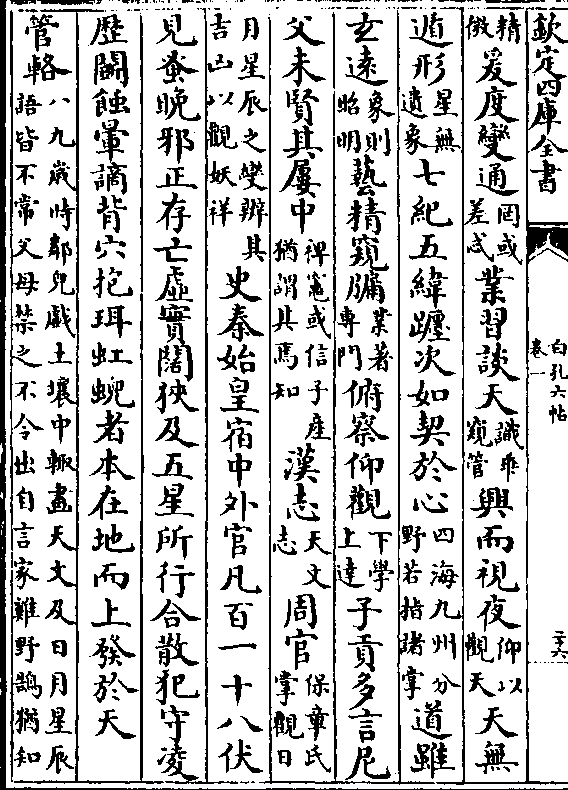 欽定四庫全書 白孔六帖 卷一 二十六
精微爰度變通罔或差忒業習談天識乖窺管興而視夜仰以觀天天無
遁形星無遺象七紀五緯躔次如契於心四海九州分野若指諸掌道雖
玄遠象則昭明藝精窺牖業著專門俯察仰觀下學上達子貢多言尼
父未賢其屢中裨竈或信子產猶謂其焉知漢志天文志周官保章氏掌觀日
月星辰之變辨其吉凶以觀妖祥史秦始皇宿中外官凡百一十八伏
見蚤晚邪正存亡虛實闊狹及五星所行合散犯守凌
歷鬭蝕暈謫背穴抱珥虹蜺者本在地而上發於天
管輅八九歲時鄰兒戲土壤中輙畫天文及日月星辰語皆不常父母禁之不令出自言家雞野鵠猶知